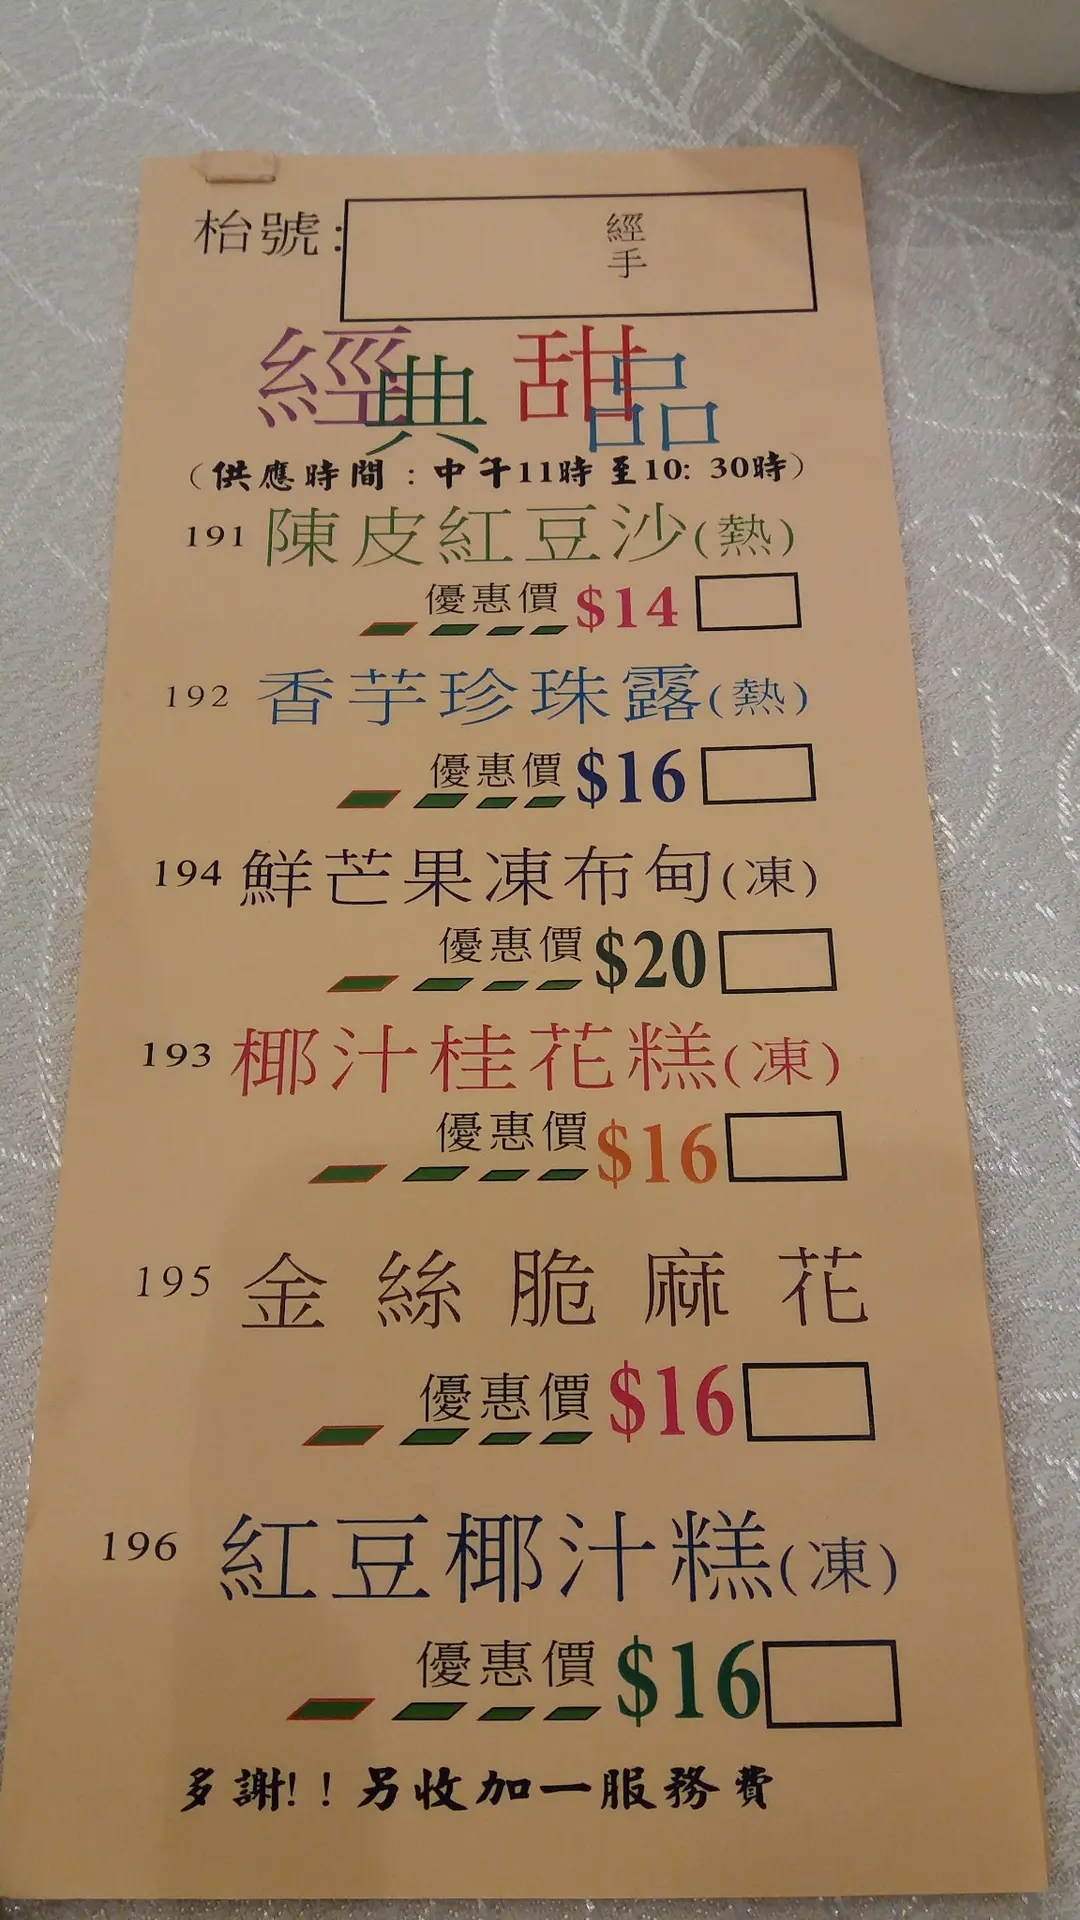 枱號：
經手
經典甜品
（供應時間：中午11時至10：30時）
191 陳皮紅豆沙(熱)
優惠價 $14
192 香芋珍珠露(熱)
優惠價 $16
194 鮮芒果凍布甸(凍)
優惠價 $20
193 椰汁桂花糕(凍)
優惠價 $16
195 金絲脆麻花
優惠價 $16
196 紅豆椰汁糕(凍)
優惠價 $16
多謝!！另收加一服務費